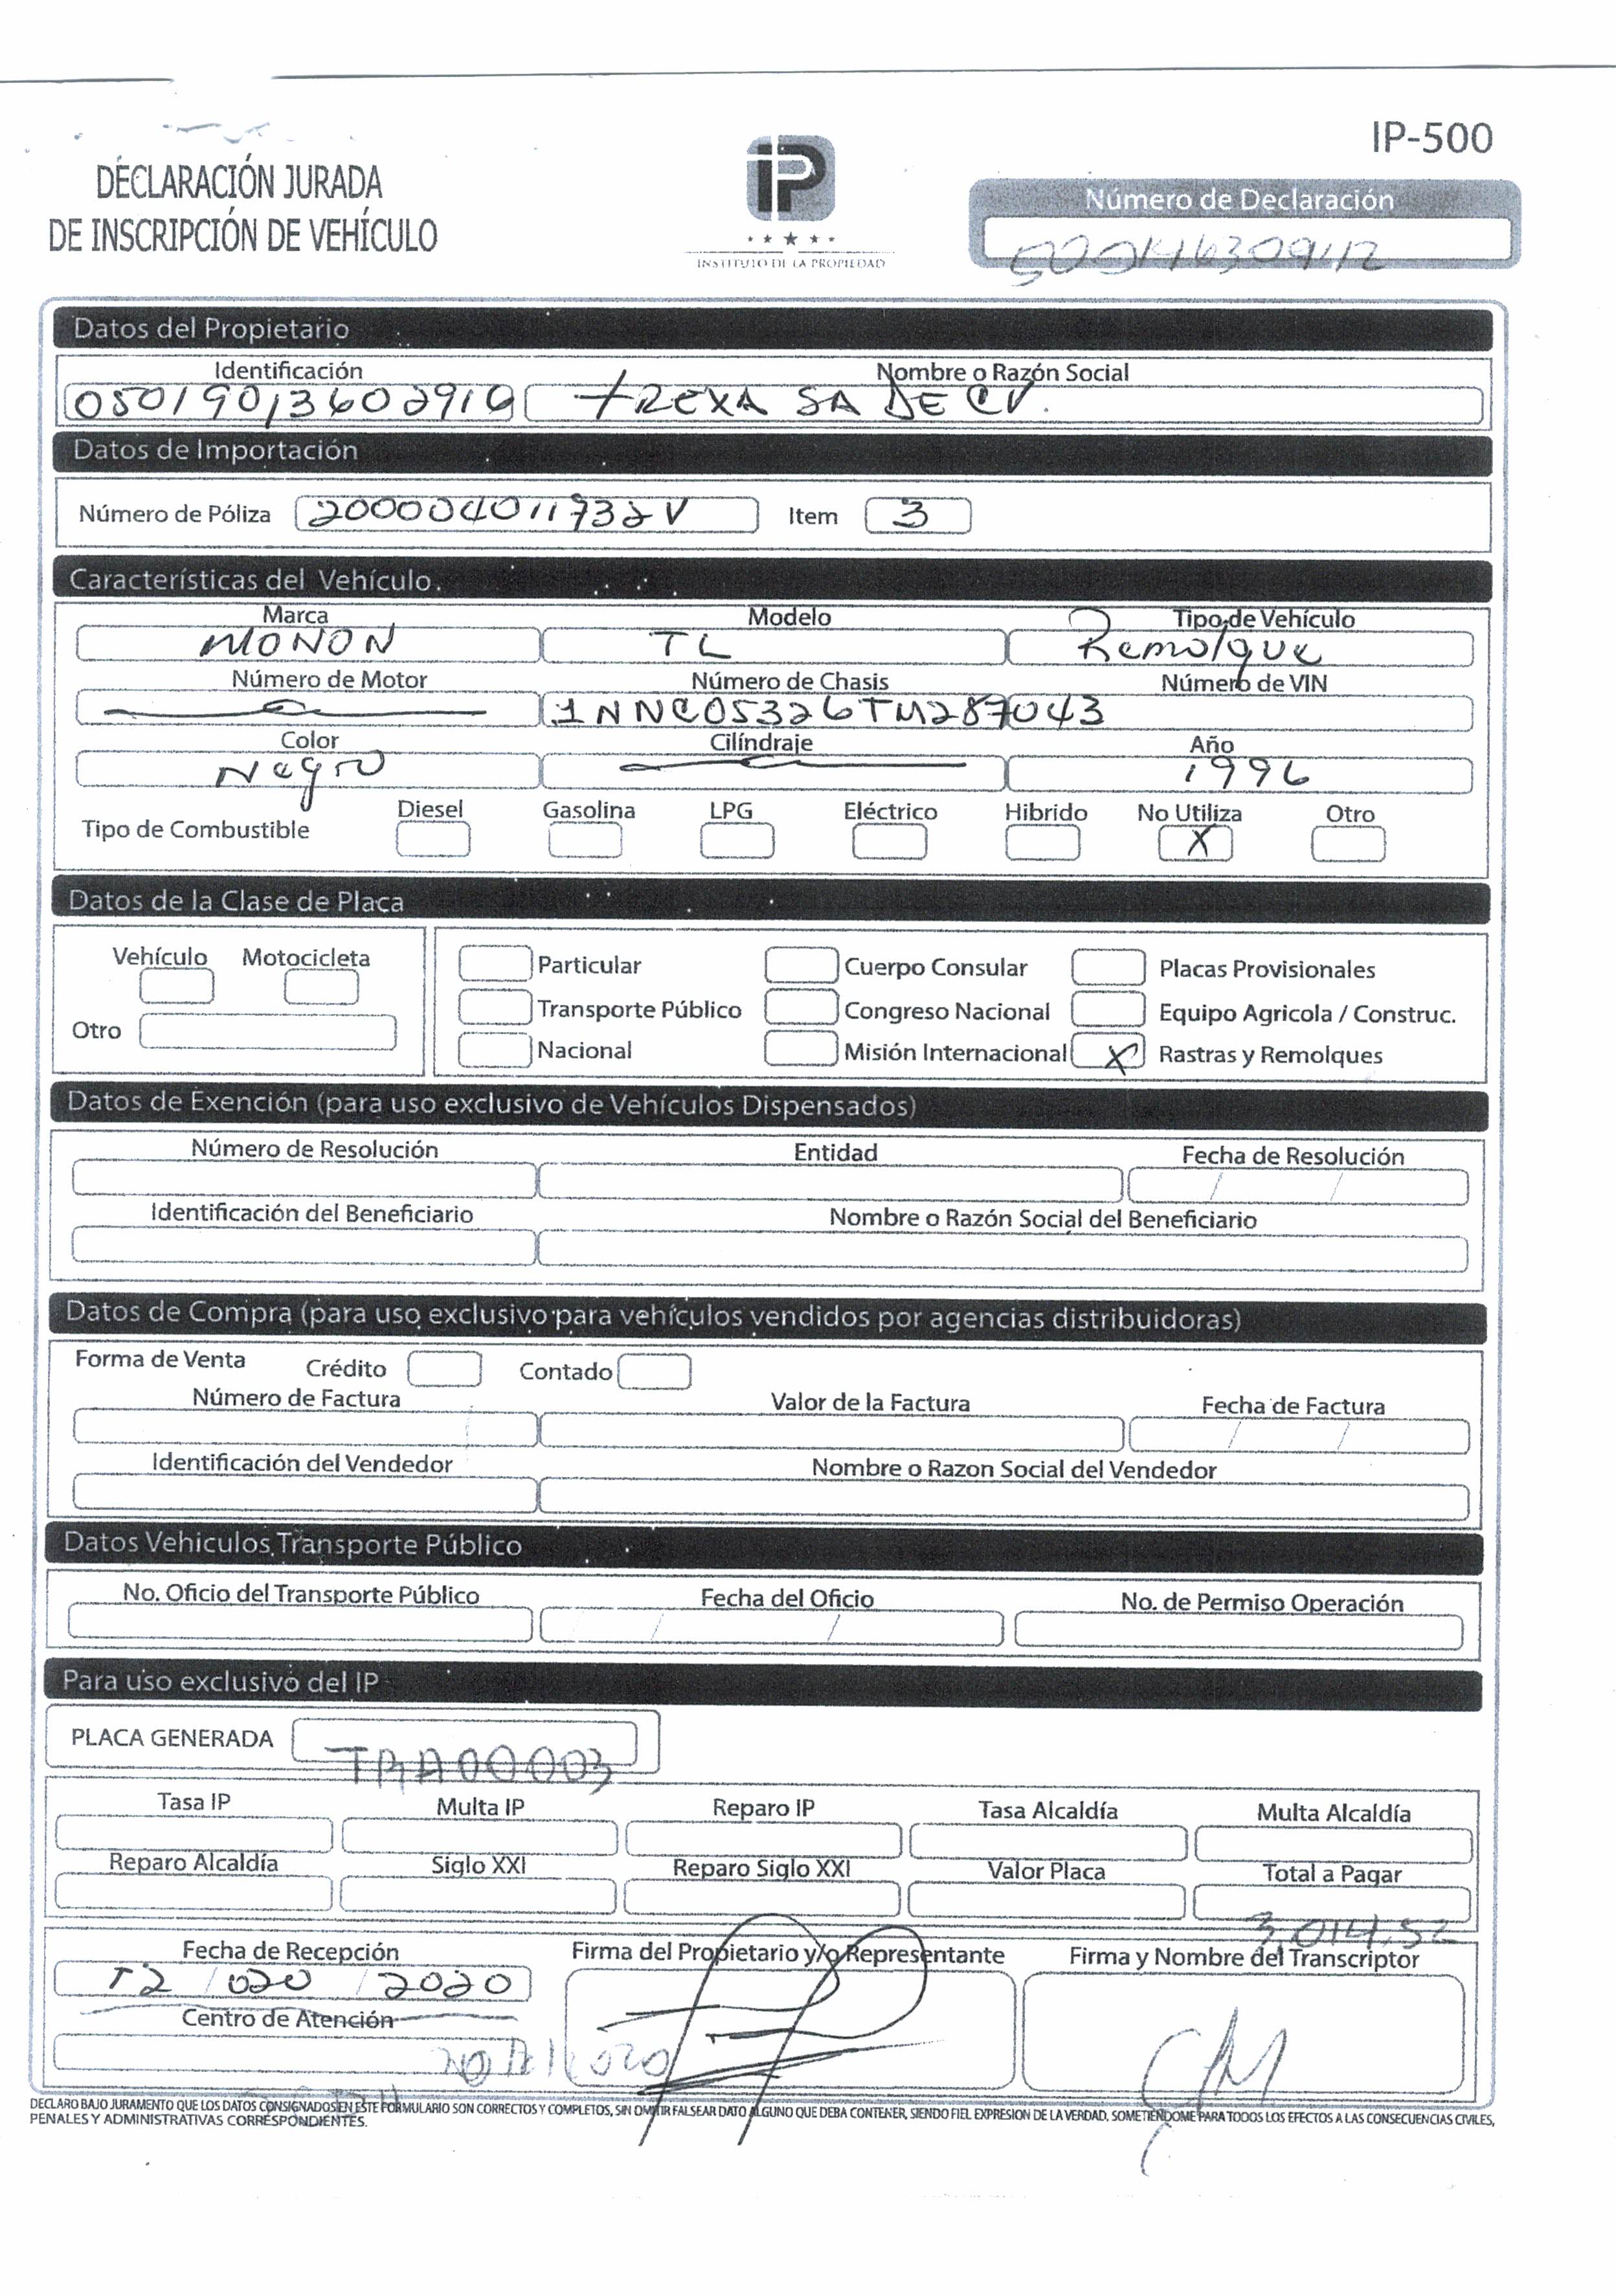 IP-500
DECLARACIÓN JURADA
DE INSCRIPCIÓN DE VEHÍCULO
IP
INSTITUTO DE LA PROPIEDAD
Número de Declaración
Datos del Propietario
Identificación Nombre o Razón Social
TREXA SA DE CV.
Datos de Importación
Número de Póliza 20000401732V Item 3
Características del Vehículo
Marca Modelo Tipo de Vehículo
MONON TL Remolque
Número de Motor Número de Chasis Número de VIN
1NNC05326TM287043
Color Cilíndraje Año
Negro 1996
Diesel Gasolina LPG Eléctrico Hibrido No Utiliza Otro
Tipo de Combustible X
Datos de la Clase de Placa
Vehículo Motocicleta Particular Cuerpo Consular Placas Provisionales
Transporte Público Congreso Nacional Equipo Agricola / Construc.
Otro Nacional Misión Internacional X Rastras y Remolques
Datos de Exención (para uso exclusivo de Vehículos Dispensados)
Número de Resolución Entidad Fecha de Resolución
/ /
Identificación del Beneficiario Nombre o Razón Social del Beneficiario
Datos de Compra (para uso exclusivo para vehículos vendidos por agencias distribuidoras)
Forma de Venta Crédito Contado
Número de Factura Valor de la Factura Fecha de Factura
/ /
Identificación del Vendedor Nombre o Razon Social del Vendedor
Datos Vehiculos Transporte Público
No. Oficio del Transporte Público Fecha del Oficio No. de Permiso Operación
/ /
Para uso exclusivo del IP
PLACA GENERADA TRA00003
Tasa IP Multa IP Reparo IP Tasa Alcaldía Multa Alcaldía
Reparo Alcaldía Siglo XXI Reparo Siglo XXI Valor Placa Total a Pagar
3,014.52
Fecha de Recepción Firma del Propietario y/o Representante Firma y Nombre del Transcriptor
2020
Centro de Atención
DECLARO BAJO JURAMENTO QUE LOS DATOS CONSIGNADOS EN ESTE FORMULARIO SON CORRECTOS Y COMPLETOS, SIN OMITIR FALSEAR DATO ALGUNO QUE DEBA CONTENER, SIENDO FIEL EXPRESION DE LA VERDAD, SOMETIENDOME PARA TODOS LOS EFECTOS A LAS CONSECUENCIAS CIVILES,
PENALES Y ADMINISTRATIVAS CORRESPONDIENTES.